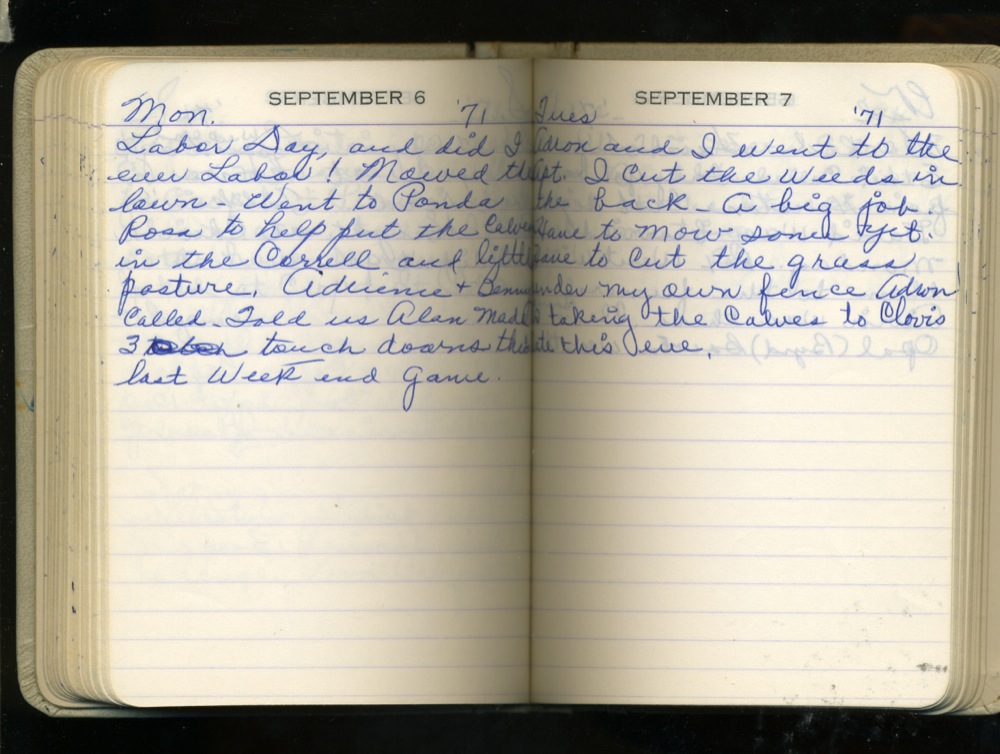 SEPTEMBER 6
Mon. '71
Labor Day, and did I
ever Labor! Mowed the
lawn - Went to Ponda
Rosa to help put the Calves
in the Correll and little
pasture. Adrience + Benn
Called - Told us Alan made
3 touch downs this
last Week end Game.
SEPTEMBER 7
Tues '71
Adron and I went to the
Apt. I cut the weeds in
the back - A big job.
Have to mow some yet.
Have to cut the grass
under my own fence Adron
is taking the Calves to Clovis
late this eve.